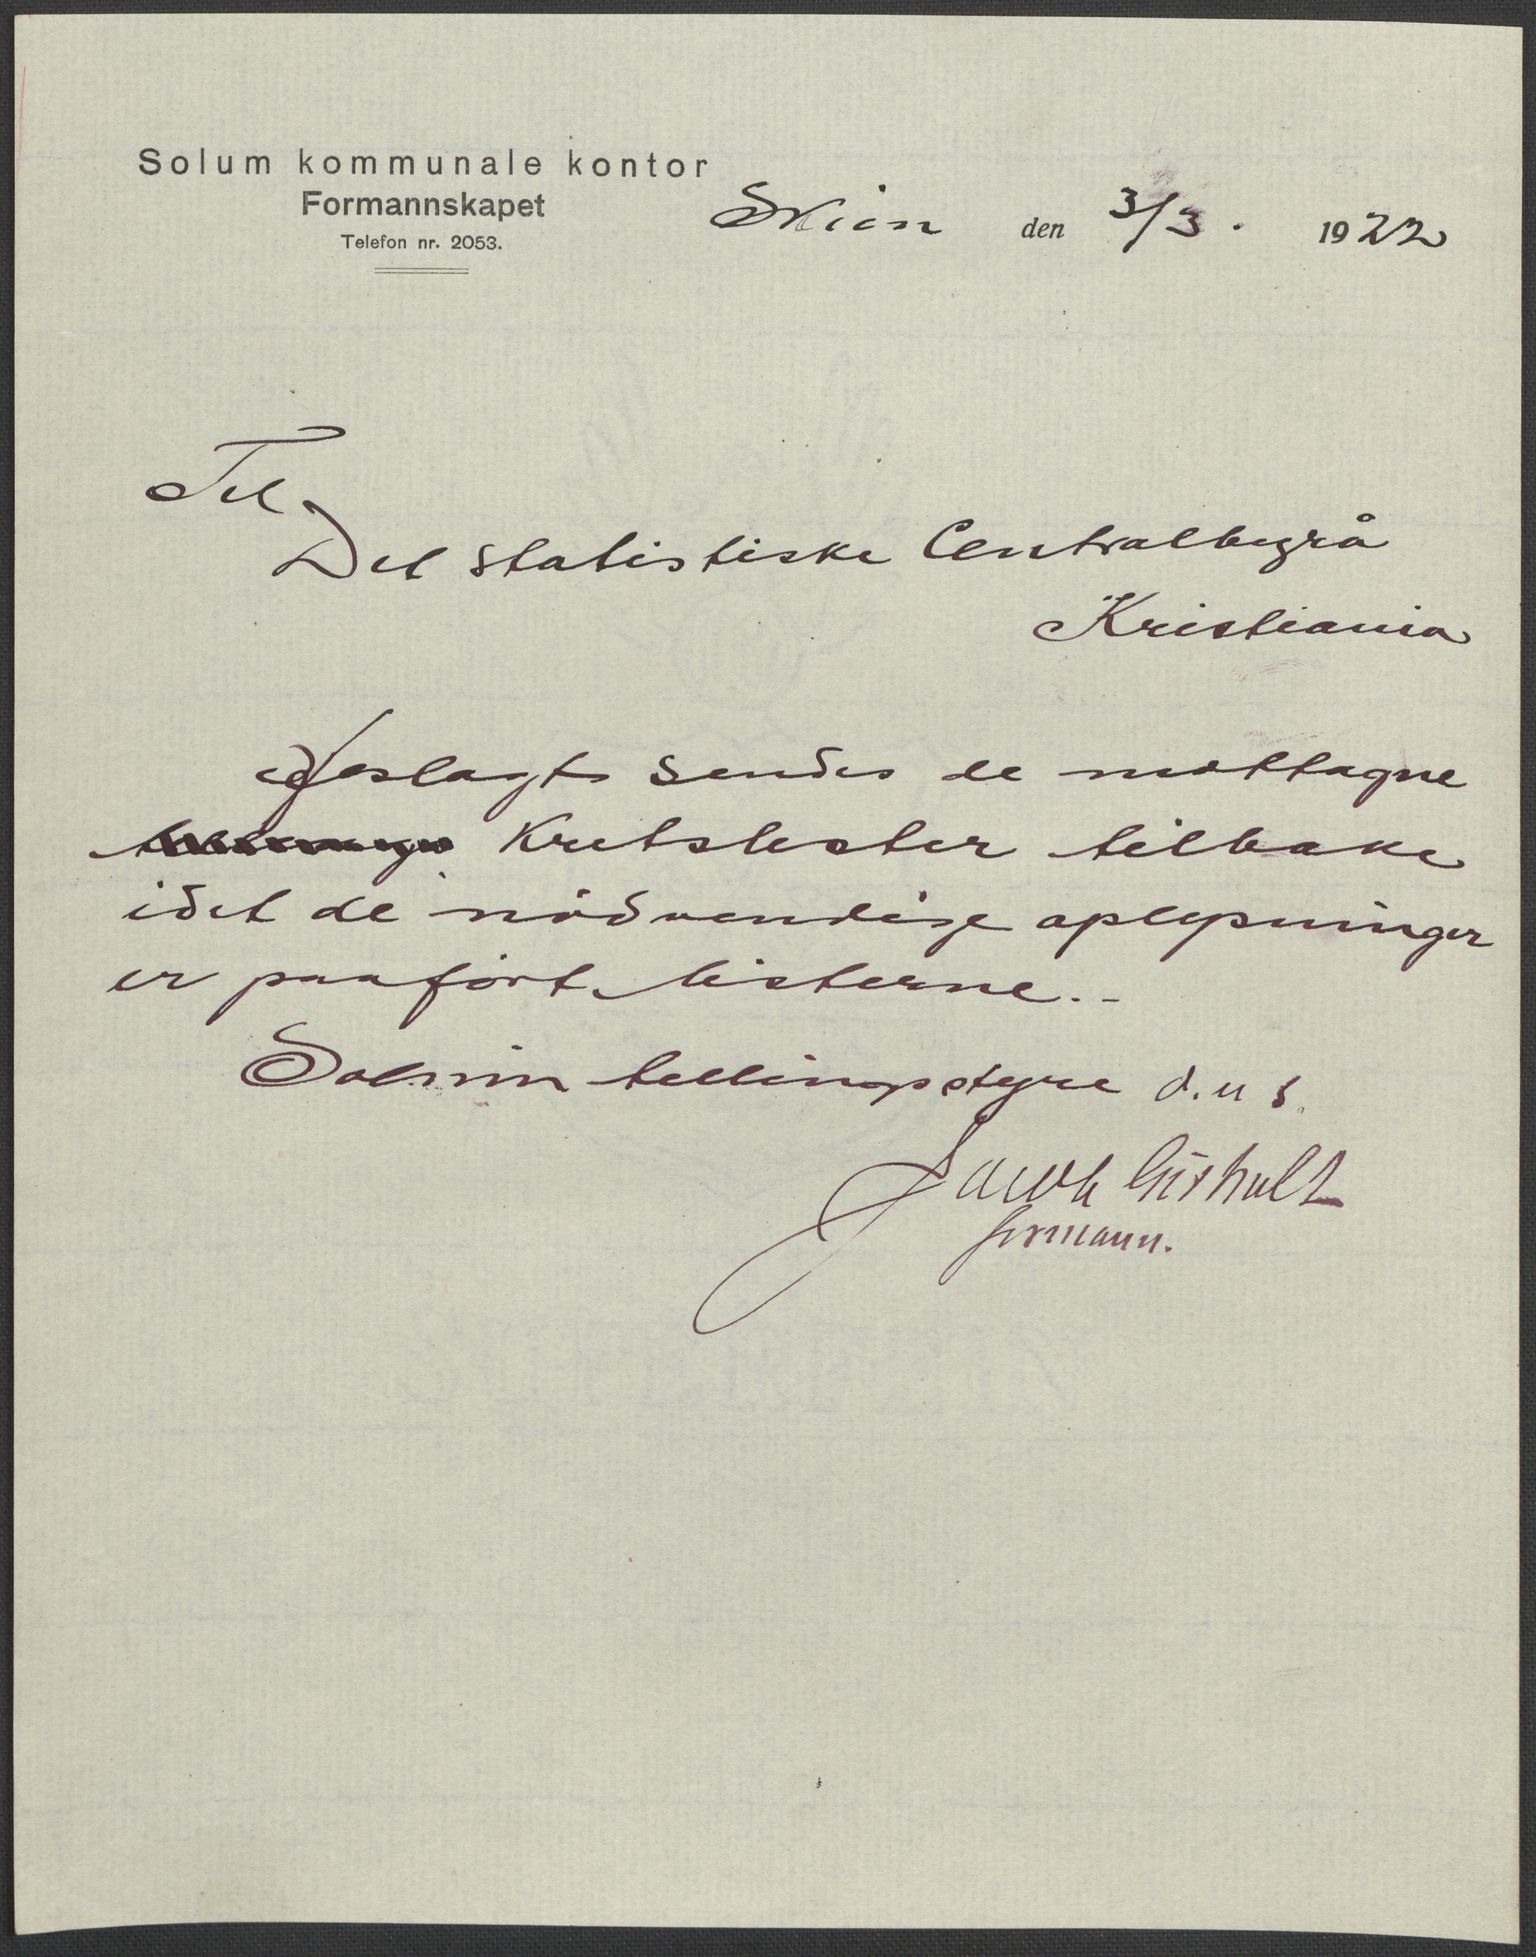 Solum kommunale kontor
Formannskapet
Telefon nr. 2053.
Skien den 3/3. 1922
Til
Det statistiske Centralbyrå
Kristiania
Vedlagt sendes de mottagne
Kretslister tilbake
idet de nödvendige oplysninger
er paaført listerne. -
Solum tellingsstyre d. u s.
Jacob Gisholt
formann.